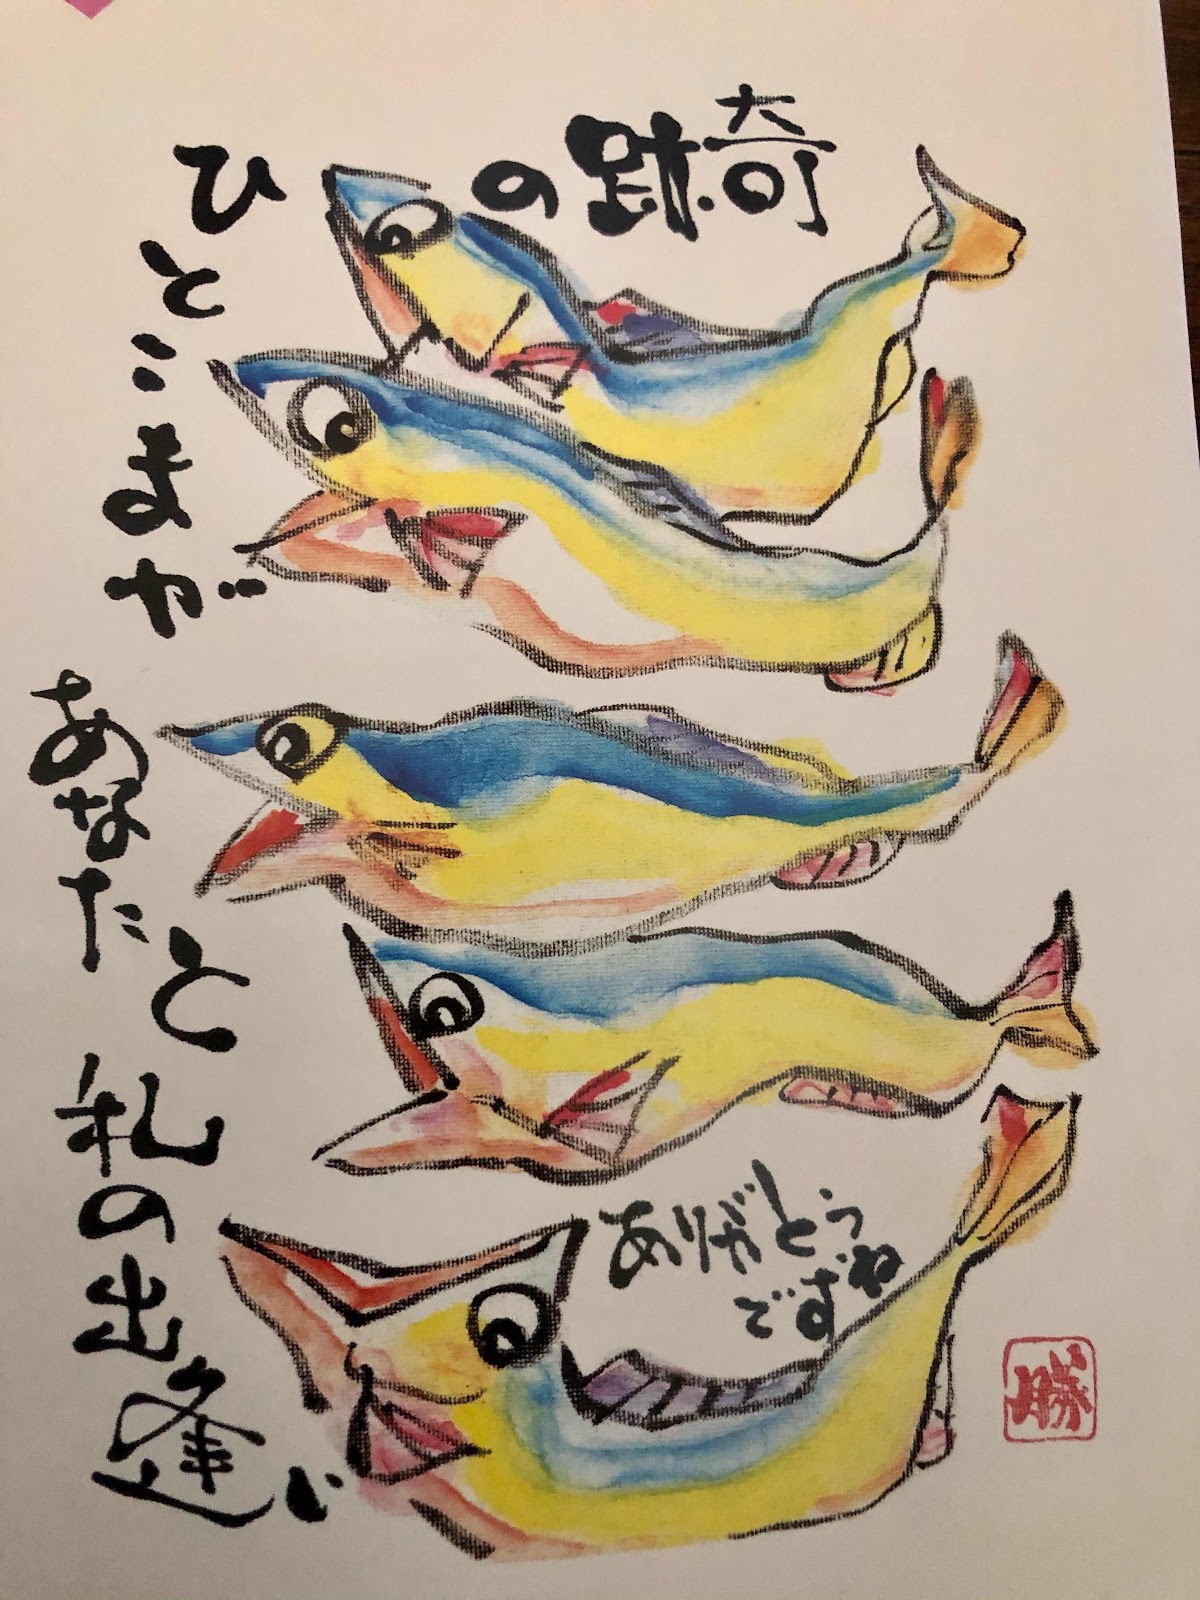 奇跡の
ひとこまが
あなたと
私の出逢い
ありがとう
ですね
勝